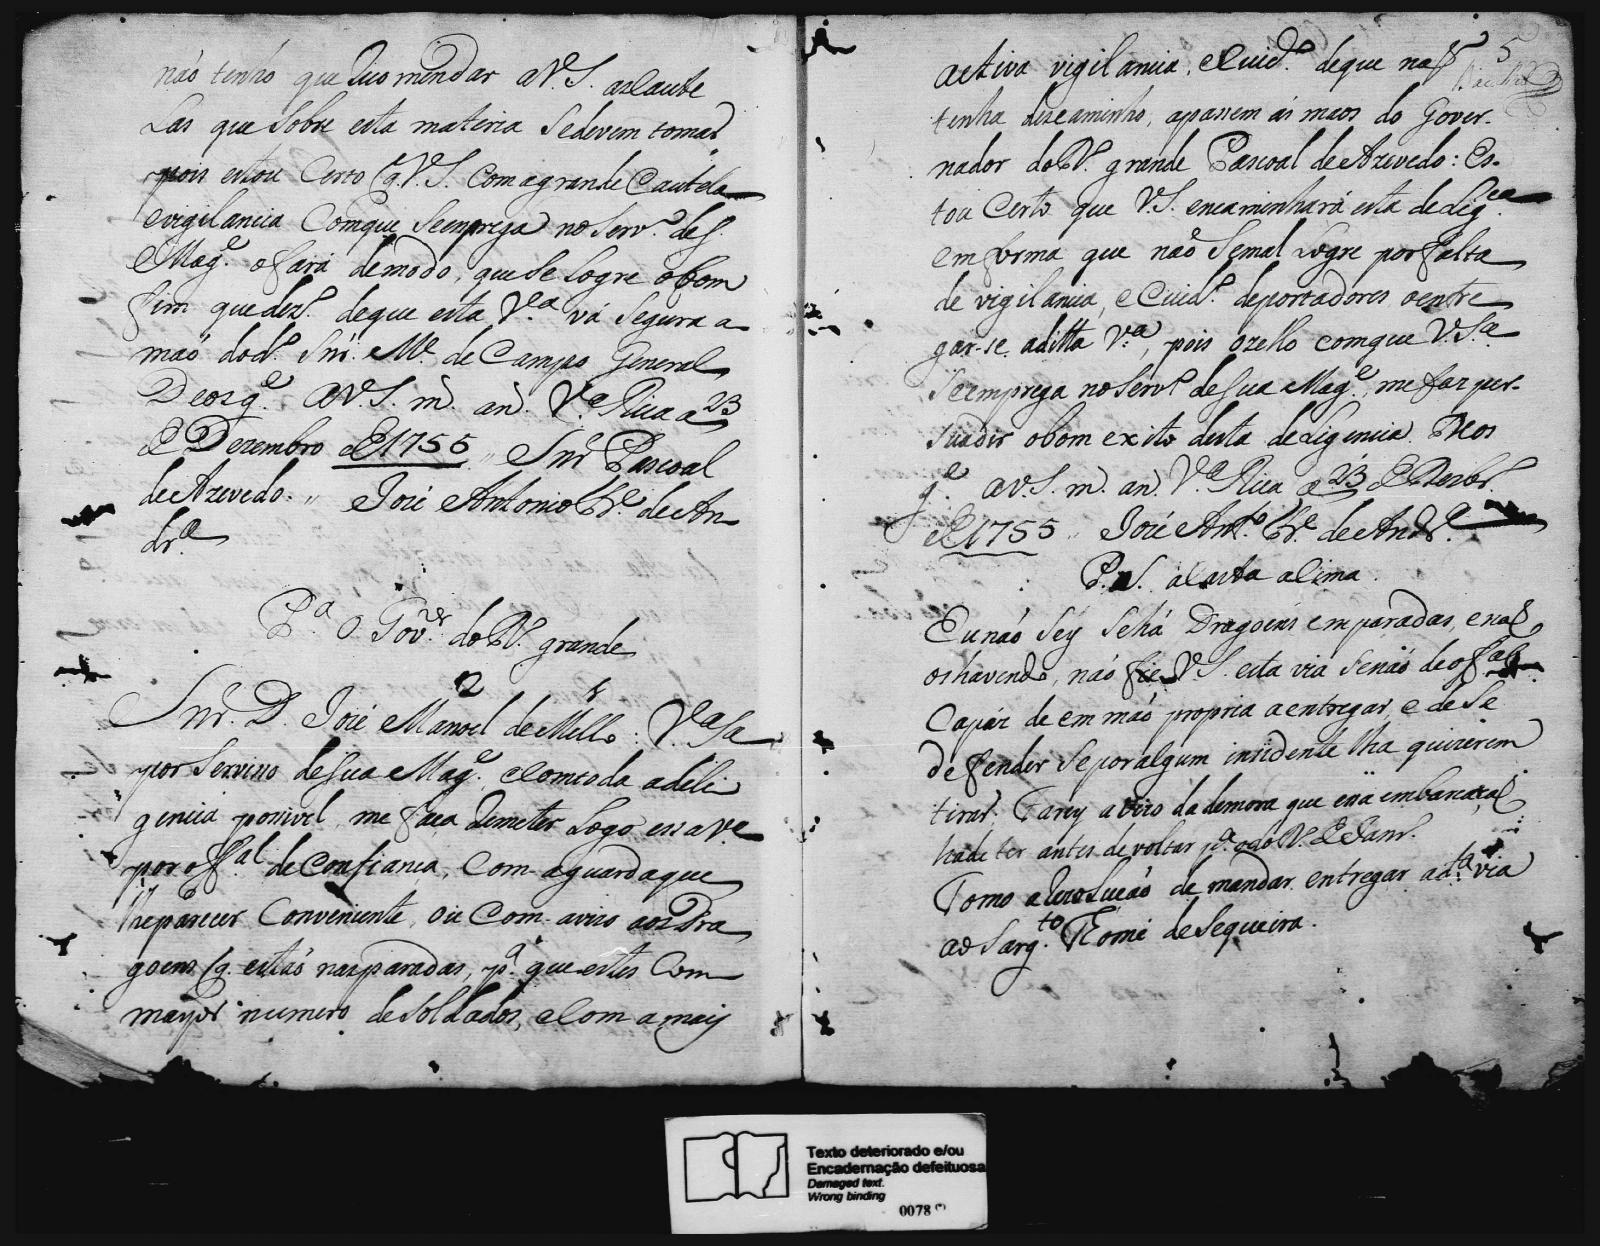 não tenho que Recomendar a V.S. as Caute
Las que Sobre esta materia Sedevem tomar
pois estou Certo q̃ V.S. Com a grande Cautela
e vigilancia Comque Seemprega no Serv.º de S.
Mag.e o fará demodo, que Se Logre o bom
fim que dez.º deque esta V.a vá Segura a
maõ do d.º Snr. M.e de Campo General
Deos g.e a V.S. m. an. V.a Rica a 23
de Dezembro de 1755 " Snr. Pascoal
de Azevedo. " José Antonio Fr.e de An
dr.a
P.a o Gov.or do R.º grande
2
Snr. D. José Manoel de Mello: V.a S.a
por Serviço de Sua Mag.e, e Com toda a deli
gencia possivel, me faça Remeter Logo essa V.a
por off.al de Confiança, Com a guarda que
lhe parecer Conveniente, ou Com avizo aos Dra
goens q̃ estaõ nas paradas, p.a que estes Com
mayor numero de Soldados, e Com a mais
5
activa vigilancia, e Cuid.º deque naõ
tenha descaminho, apassem ás maos do Gover-
nador do R.º grande Pascoal de Azevedo: Es-
tou Certo que V.S. encaminhará esta deLig.ca
em forma que naõ Semal Logre por falta
de vigilancia, e Cuid.º deportadores o entre
gar-se a ditta V.a, pois o zello comque V.S.a
Seemprega no Serv.º de Sua Mag.e, me faz per-
suadir o bom exito desta deLigencia. Deos
g.e a V.S. m. an. V.a Rica a 23 de Dezbr.
de 1755 " José Ant.º Fr.e de Andr.a
P. S. a Carta a Sima.
Eu naõ Sey Se há Dragoens em paradas, e naõ
os havendo, naõ fie V.S. esta via Senaõ de off.al
Capáz de em maõ propria a entregar, e de Se
defender Se por algum insidente lha quizerem
tirar. Farey avizo da demora que essa embarcaçaõ
hade ter antes de voltar p.a o do R.º de Janr.º
Tomo a Rezoluçaõ de mandar entregar a d.ta via
ao Sarg.to Thomé de Sequeira.
Texto deteriorado e/ou
Encadernação defeituosa
Damaged text.
Wrong binding
0078